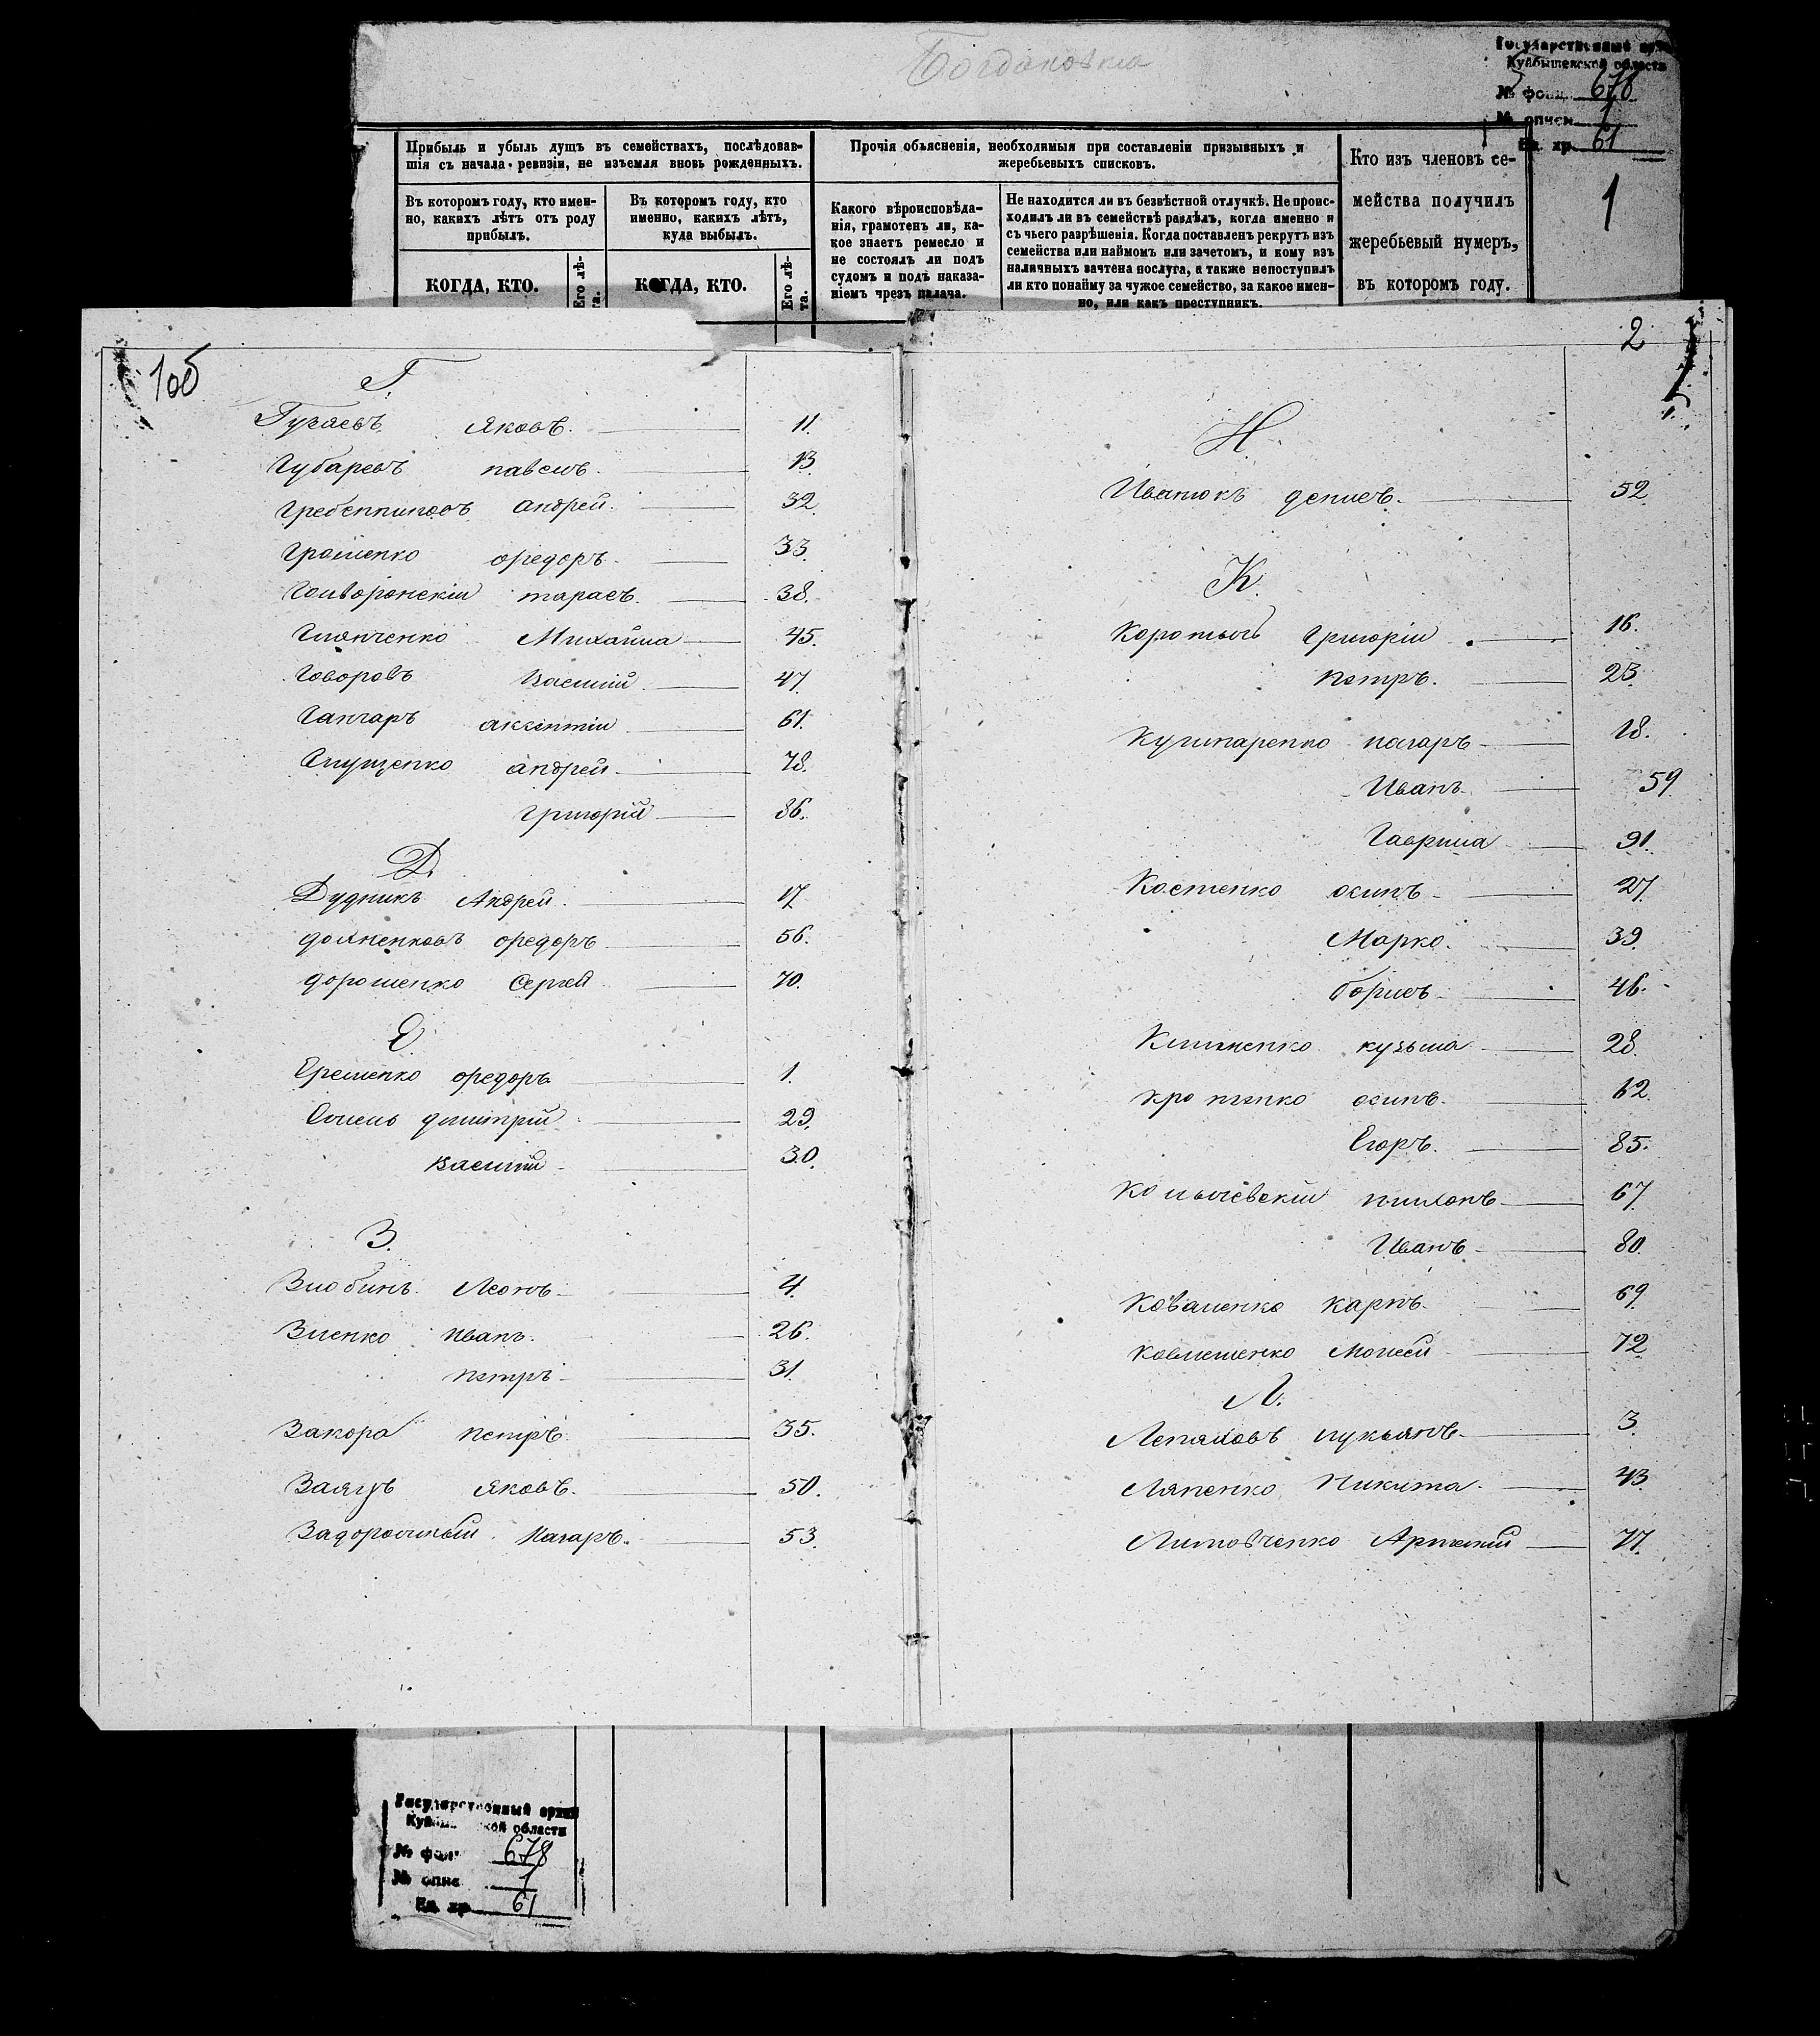 Богдановка
Государственный архив
Куйбышевской области
№ фонд. 678
№ описи 1
Ед. хр. 61
1
Прибыль и убыль душъ въ семействахъ, послѣдовав-
шія съ начала ревизіи, не изъемля вновь рожденныхъ.
Въ которомъ году, кто имен-
но, какихъ лѣтъ отъ роду
прибылъ.
КОГДА, КТО.
Его лѣ-
та.
Въ которомъ году, кто
именно, какихъ лѣтъ,
куда выбылъ.
КОГДА, КТО.
Его лѣ-
та.
Прочія объясненія, необходимыя при составленіи призывныхъ и
жеребьевыхъ списковъ.
Какого вѣроисповѣда-
нія, грамотенъ ли, ка-
кое знаетъ ремесло и
не состоялъ ли подъ
судомъ и подъ наказа-
ніемъ чрезъ палача.
Не находится ли въ безвѣстной отлучкѣ. Не проис-
ходилъ ли въ семействѣ раздѣлъ, когда именно и
съ чьего разрѣшенія. Когда поставленъ рекрутъ изъ
семейства или наймомъ или зачетомъ, и кому изъ
наличныхъ зачтена послуга, а также непоступилъ
ли кто понайму за чужое семейство, за какое имен-
но, или какъ преступникъ.
Кто изъ членовъ се-
мейства получилъ
жеребьевый нумеръ,
въ которомъ году.
1об
Г.
Яковъ. 11.
Губаревъ павелъ. 13
Гребенниковъ андрей. 32.
Громенко федоръ. 33.
Гайворонскій тарасъ. 38.
Глянченко Михайла 45.
Говоровъ Василій 47.
Ганчаръ аксентій 61.
Глущенко андрей. 78.
Григорій 86.
Д.
Дудникъ Андрей. 17
долженковъ федоръ 56.
дорошенко Сергей 70.
Е
Еременко федоръ 1.
димитрій 29.
василій 30.
З.
Злобинъ Леонъ 4.
Зленко иванъ. 26.
петръ 31
Закора петръ. 35.
Заяцъ Яковъ. 50.
Задорожный Назаръ. 53.
2
И.
Иванюкъ денисъ. 52
К.
Коротычъ Григорій 16.
петръ. 23.
Кушнаренко назаръ 18.
Иванъ 59
Гаврила 91.
Костенко осипъ 27.
Марко. 39.
борисъ 46.
Клименко кузьма 28.
осипъ. 62.
Егоръ. 85.
тихонъ 67
Иванъ 80.
Коваленко карпъ. 69.
Моисей 72.
Л.
Лепяховъ лукьянъ. 3
Ляпенко Никита. 43
Литовченко Артемій 77.
Государственный архив
Куйбышевской области
№ фонд. 678
№ описи 1
Ед. хр. 61